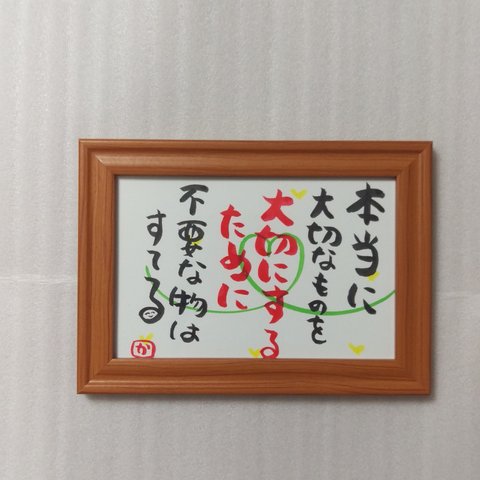 本当に
大切なものを
大切にする
ために
不要な物は
すてる
か